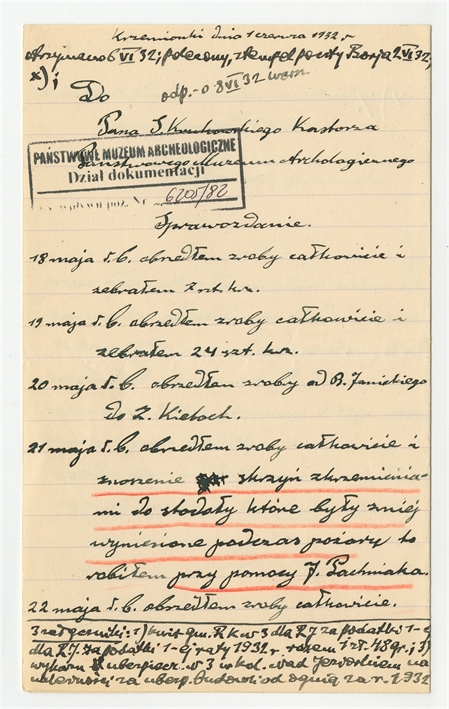 Krzemionki dnia 1 czerwca 1932 r
otrzymano 6 VI 32; polecony, stempel poczty Borja 2 VI 32;
x) i
odp. - o 8 VI 32
Do
Pana S. Krukowskiego Kustosza
Państwowego Muzeum Archologicznego
PAŃSTWOWE MUZEUM ARCHEOLOGICZNE
Dział dokumentacji
poz. Nr 6205/82
Sprawozdanie.
18 maja t. b. obszedłem zroby całkowicie i
zebrałem 7 szt. krz.
19 maja t. b. obszedłem zroby całkowicie i
zebrałem 24 szt. krz.
20 maja t. b. obszedłem zroby od B. Janickiego
do Z. Kietoch.
21 maja t. b. obszedłem zroby całkowicie i
znoszenie skrzyń zkrzemienia-
mi do stodoły które były zniéj
wyniesione podczas pożary to
robiłem przy pomocy J. Pachniaka.
22 maja t. b. obszedłem zroby całkowicie.
3 załączniki: 1) kwit gm. R.K. w 3 dla P.J za podatki 1-ej
dla P.J. za podatki 1-ej raty 1932 r. razem 1 zł. 48 gr; 3)
wykazu ubezpiecz. w 3 w kol. nad Jeziorkiem na
należność za ubezp. budowli od ognia za r. 1932